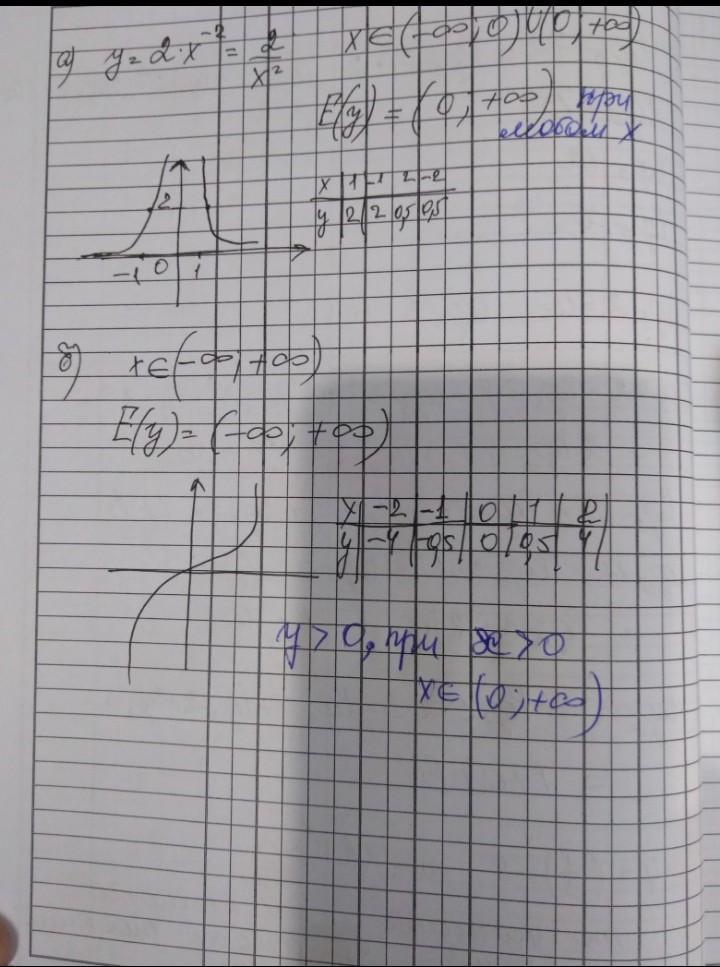 а) y = 2·x⁻² = 2/x² x∈(-∞; 0)∪(0; +∞)
E(y) = (0; +∞) при
любом x
x | 1 | -1 | 2 | -2
y | 2 | 2 | 0,5 | 0,5
2
-1 0 1
б) x∈(-∞; +∞)
E(y) = (-∞; +∞)
x | -2 | -1 | 0 | 1 | 2
y | -4 | -0,5 | 0 | 0,5 | 4
y > 0, при x > 0
x∈(0; +∞)